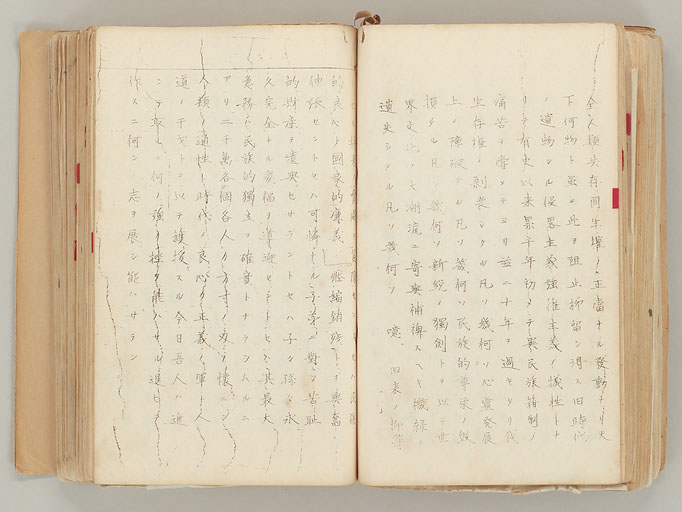 全人類共存同生權ノ正當ナル發動ナリ天
下何物ト雖モ此ヲ阻止抑留シ得ス旧時代
ノ遺物タル侵畧主義強權主義ノ犠牲トナ
リテ有史以来累千年初メテ異民族箝制ノ
痛苦ヲ嘗メテヨリ茲ニ十年ヲ過キタリ我
生存權ノ剥喪シタル凡ソ幾何ソ心靈發展
上ノ障礙タル凡ソ幾何ソ民族的尊栄ノ毀
損タル凡ソ幾何ソ新鋭ト獨創トヲ以テ世
界文化ノ大潮流ニ寄與補裨スヘキ機縁ノ
遺失シタル凡ソ幾何ソ 噫、旧来ノ抑欝
的良心ト國家的廉義ノ壓縮銷殘トヲ興奮
伸張セントセハ可憐ナル子弟ニ對シ苦恥
的財産ヲ遺與セサラントセハ子々孫々永
久完全ナル慶福ヲ導迎セントセハ其最大
急務ハ民族的獨立ヲ確實トナラシムルニ
アリ二千萬各個人カ方寸ノ刃ヲ懐ニシ
人類ノ通性ト時代ノ良心カ正義ノ軍ト人
道ノ干戈トヲ以テ護援スル今日吾人ハ進
ンテ取ルニ何ノ強ヲ挫ク能ハサル退ヒテ
作スニ何ン志ヲ展ン能ハサラン